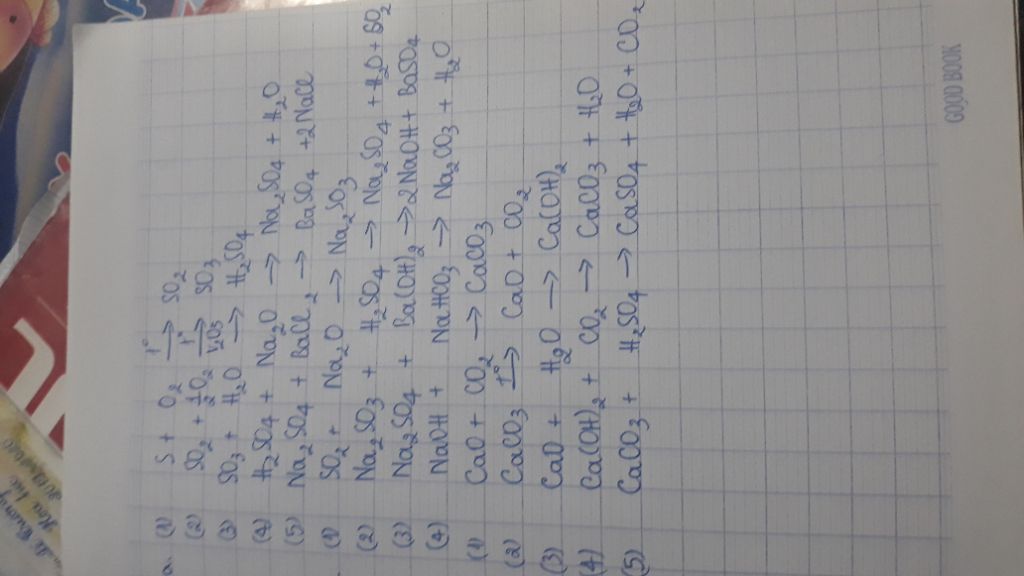 a. (1) S + O₂ —t°→ SO₂
(2) SO₂ + ½O₂ —t°, V₂O₅→ SO₃
(3) SO₃ + H₂O → H₂SO₄
(4) H₂SO₄ + Na₂O → Na₂SO₄ + H₂O
(5) Na₂SO₄ + BaCl₂ → BaSO₄ + 2NaCl
(1) SO₂ + Na₂O → Na₂SO₃
(2) Na₂SO₃ + H₂SO₄ → Na₂SO₄ + H₂O + SO₂
(3) Na₂SO₄ + Ba(OH)₂ → 2NaOH + BaSO₄
(4) NaOH + NaHCO₃ → Na₂CO₃ + H₂O
(1) CaO + CO₂ → CaCO₃
(2) CaCO₃ —t°→ CaO + CO₂
(3) CaO + H₂O → Ca(OH)₂
(4) Ca(OH)₂ + CO₂ → CaCO₃ + H₂O
(5) CaCO₃ + H₂SO₄ → CaSO₄ + H₂O + CO₂
GOOD BOOK